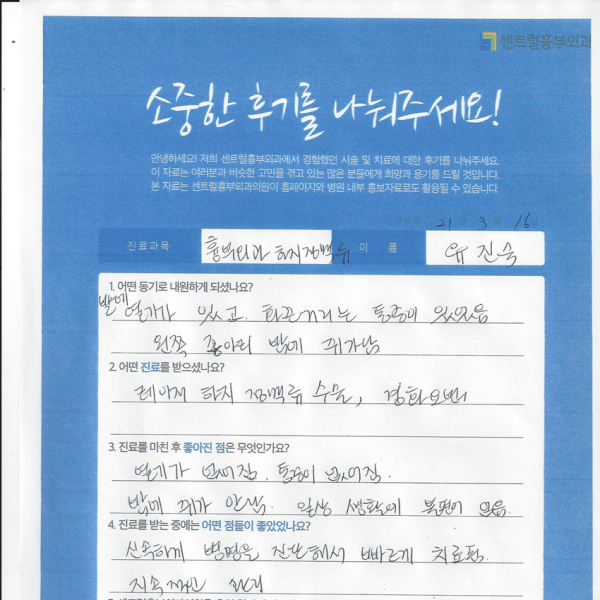 센트럴흉부외과
소중한 후기를 나눠주세요!
안녕하세요! 저희 센트럴흉부외과에서 경험했던 시술 및 치료에 대한 후기를 나눠주세요.
이 자료는 여러분과 비슷한 고민을 겪고 있는 많은 분들에게 희망과 용기를 드릴 것입니다.
본 자료는 센트럴흉부외과의원이 홈페이지와 병원 내부 홍보자료로도 활용될 수 있습니다.
21 년 3 월 16 일
진료과목 흉부외과 하지정맥류 이 름 유진숙
1. 어떤 동기로 내원하게 되셨나요?
발에 열기가 있고. 화끈거리는 통증이 있었음
왼쪽 종아리 밤에 쥐가남
2. 어떤 진료를 받으셨나요?
레이저 하지 정맥류 수술, 경화요법
3. 진료를 마친 후 좋아진 점은 무엇인가요?
열기가 없어짐. 통증이 없어짐.
밤에 쥐가 안남. 일상 생활에 불편이 없음.
4. 진료를 받는 중에는 어떤 점들이 좋았었나요?
신속하게 병명을 진단해서 빠르게 치료됨.
지속적인 관리